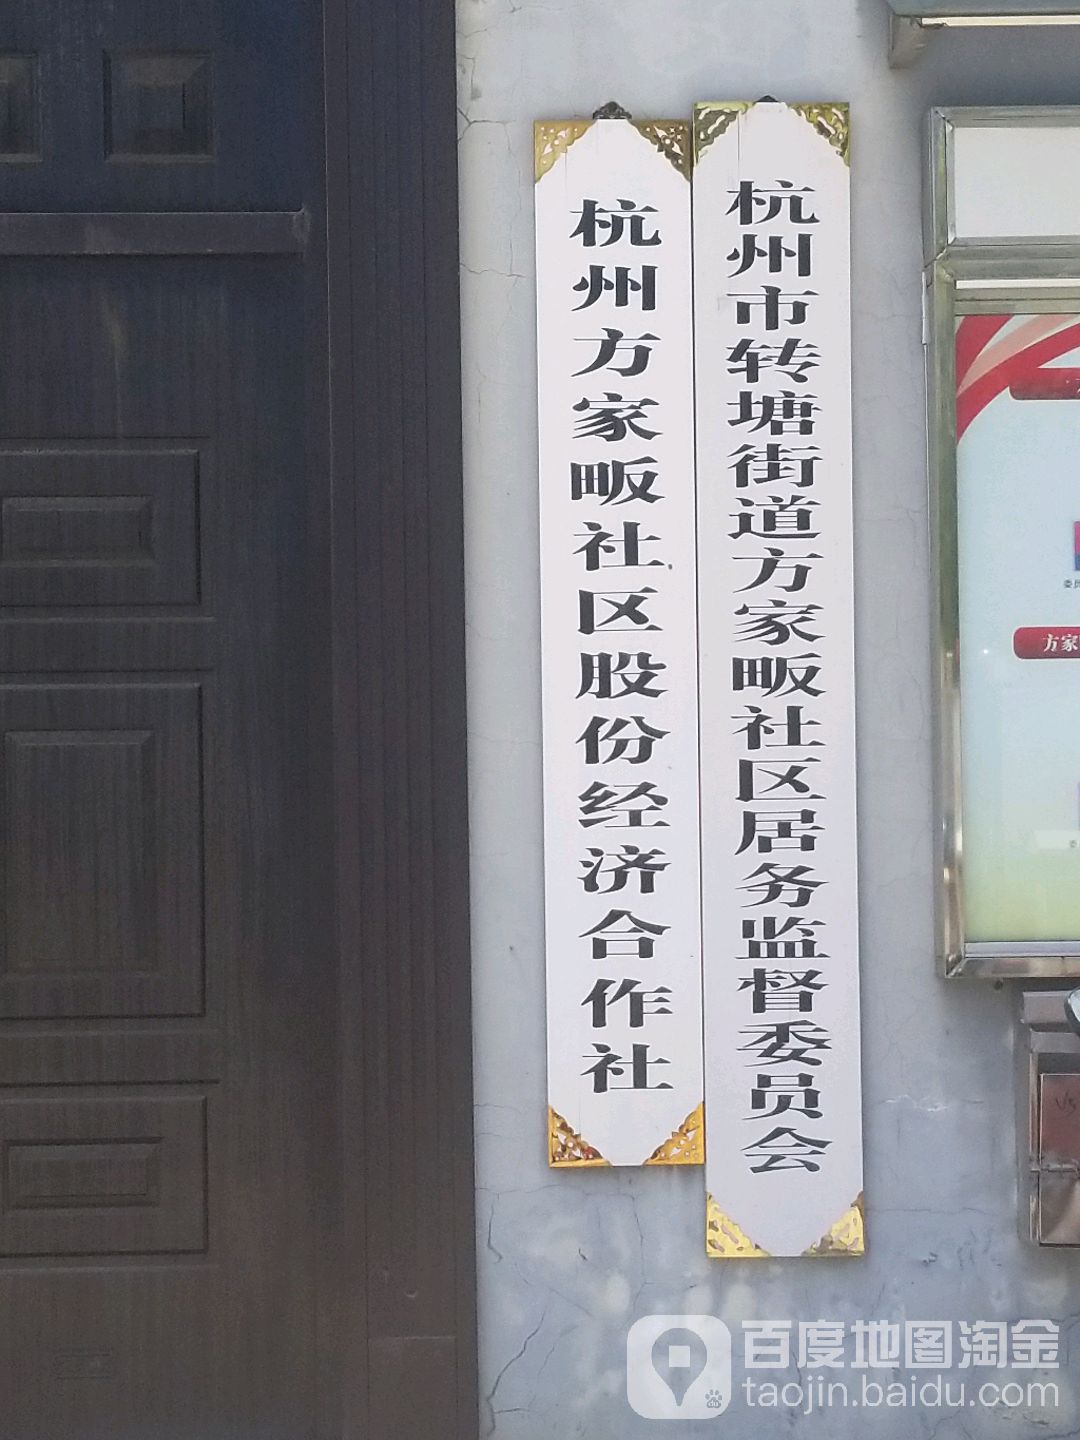 杭州方家畈社区股份经济合作社
杭州市转塘街道方家畈社区居务监督委员会
方家
百度地图淘金
taojin.baidu.com